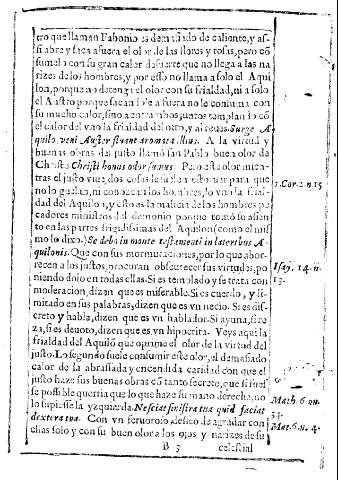 tro que llaman Fabonio es demasiado de caliente, y as-
si abre y saca a fuera el olor de las flores y rosas, pero cõ
sumelo con su gran calor de suerte que no llega a las na
rizes de los hombres, y por esso no llama a solo el Aqui
lon, porque no detenga el olor con su frialdad, ni a solo
el Austro porque sacandole a fuera no le consuma con
su mucho calor, sino a entrambos juntos templando cõ
el calor del vno la frialdad del otro, y al reues. Surge A-
quilo, veni Auster fluent aromata illius. A la virtud y
buenas obras del justo llamó san Pablo buen olor de
Christo. Christi bonus odor sumus. Pero este olor mien-
tras el justo viue, dos cosas le suelen estoruar para que
no lo gusten, ni conozcan los hombres, lo vno la frial-
dad del Aquilon, y esto es la malicia de los hombres pe
cadores ministros del demonio porque tomó su asien
to en las partes frigidissimas del Aquilon (como el mis
mo lo dixo.) Sedebo in monte testamenti in lateribus A-
quilonis. Que con sus mormuraciones, por lo que abor-
recen a los justos, procuran obscurecer sus virtudes, po
niendo dolo en todas ellas. Si es templado y se trata con
moderacion, dizen que es miserable. Si es cuerdo, y li-
mitado en sus palabras, dizen que es vn necio. Si es dis-
creto y habla, dizen que es vn hablador. Si ayuna, si re
za, si es deuoto, dizen que es vn hipocrita. Veys aqui la
frialdad del Aquilõ que oprime el olor de la virtud del
justo. Lo segundo suele consumir este olor, el demasiado
calor de la abrassada y encendida caridad con que el
justo haze sus buenas obras cõ tanto secreto, que si fues
se possible querria que lo que haze su mano derecha, no
lo supiesse la yzquierda. Nesciat sinistra tua quid faciat
dextera tua. Con vn feruoroso desseo de agradar con
ellas solo y con su buen olor a los ojos y narizes de su
B 3 celestial
2.Cor.2.n.15
Isay. 14. n.
13.
Math. 6. nu.
34.
Mat. 6. n. 4.